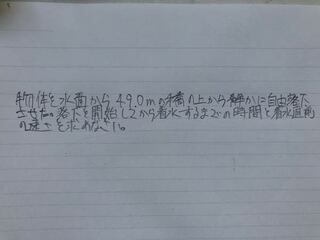 物体を水面から49.0mの橋の上から静かに自由落下
させた。落下を開始してから着水するまでの時間と着水直前
の速さを求めなさい。